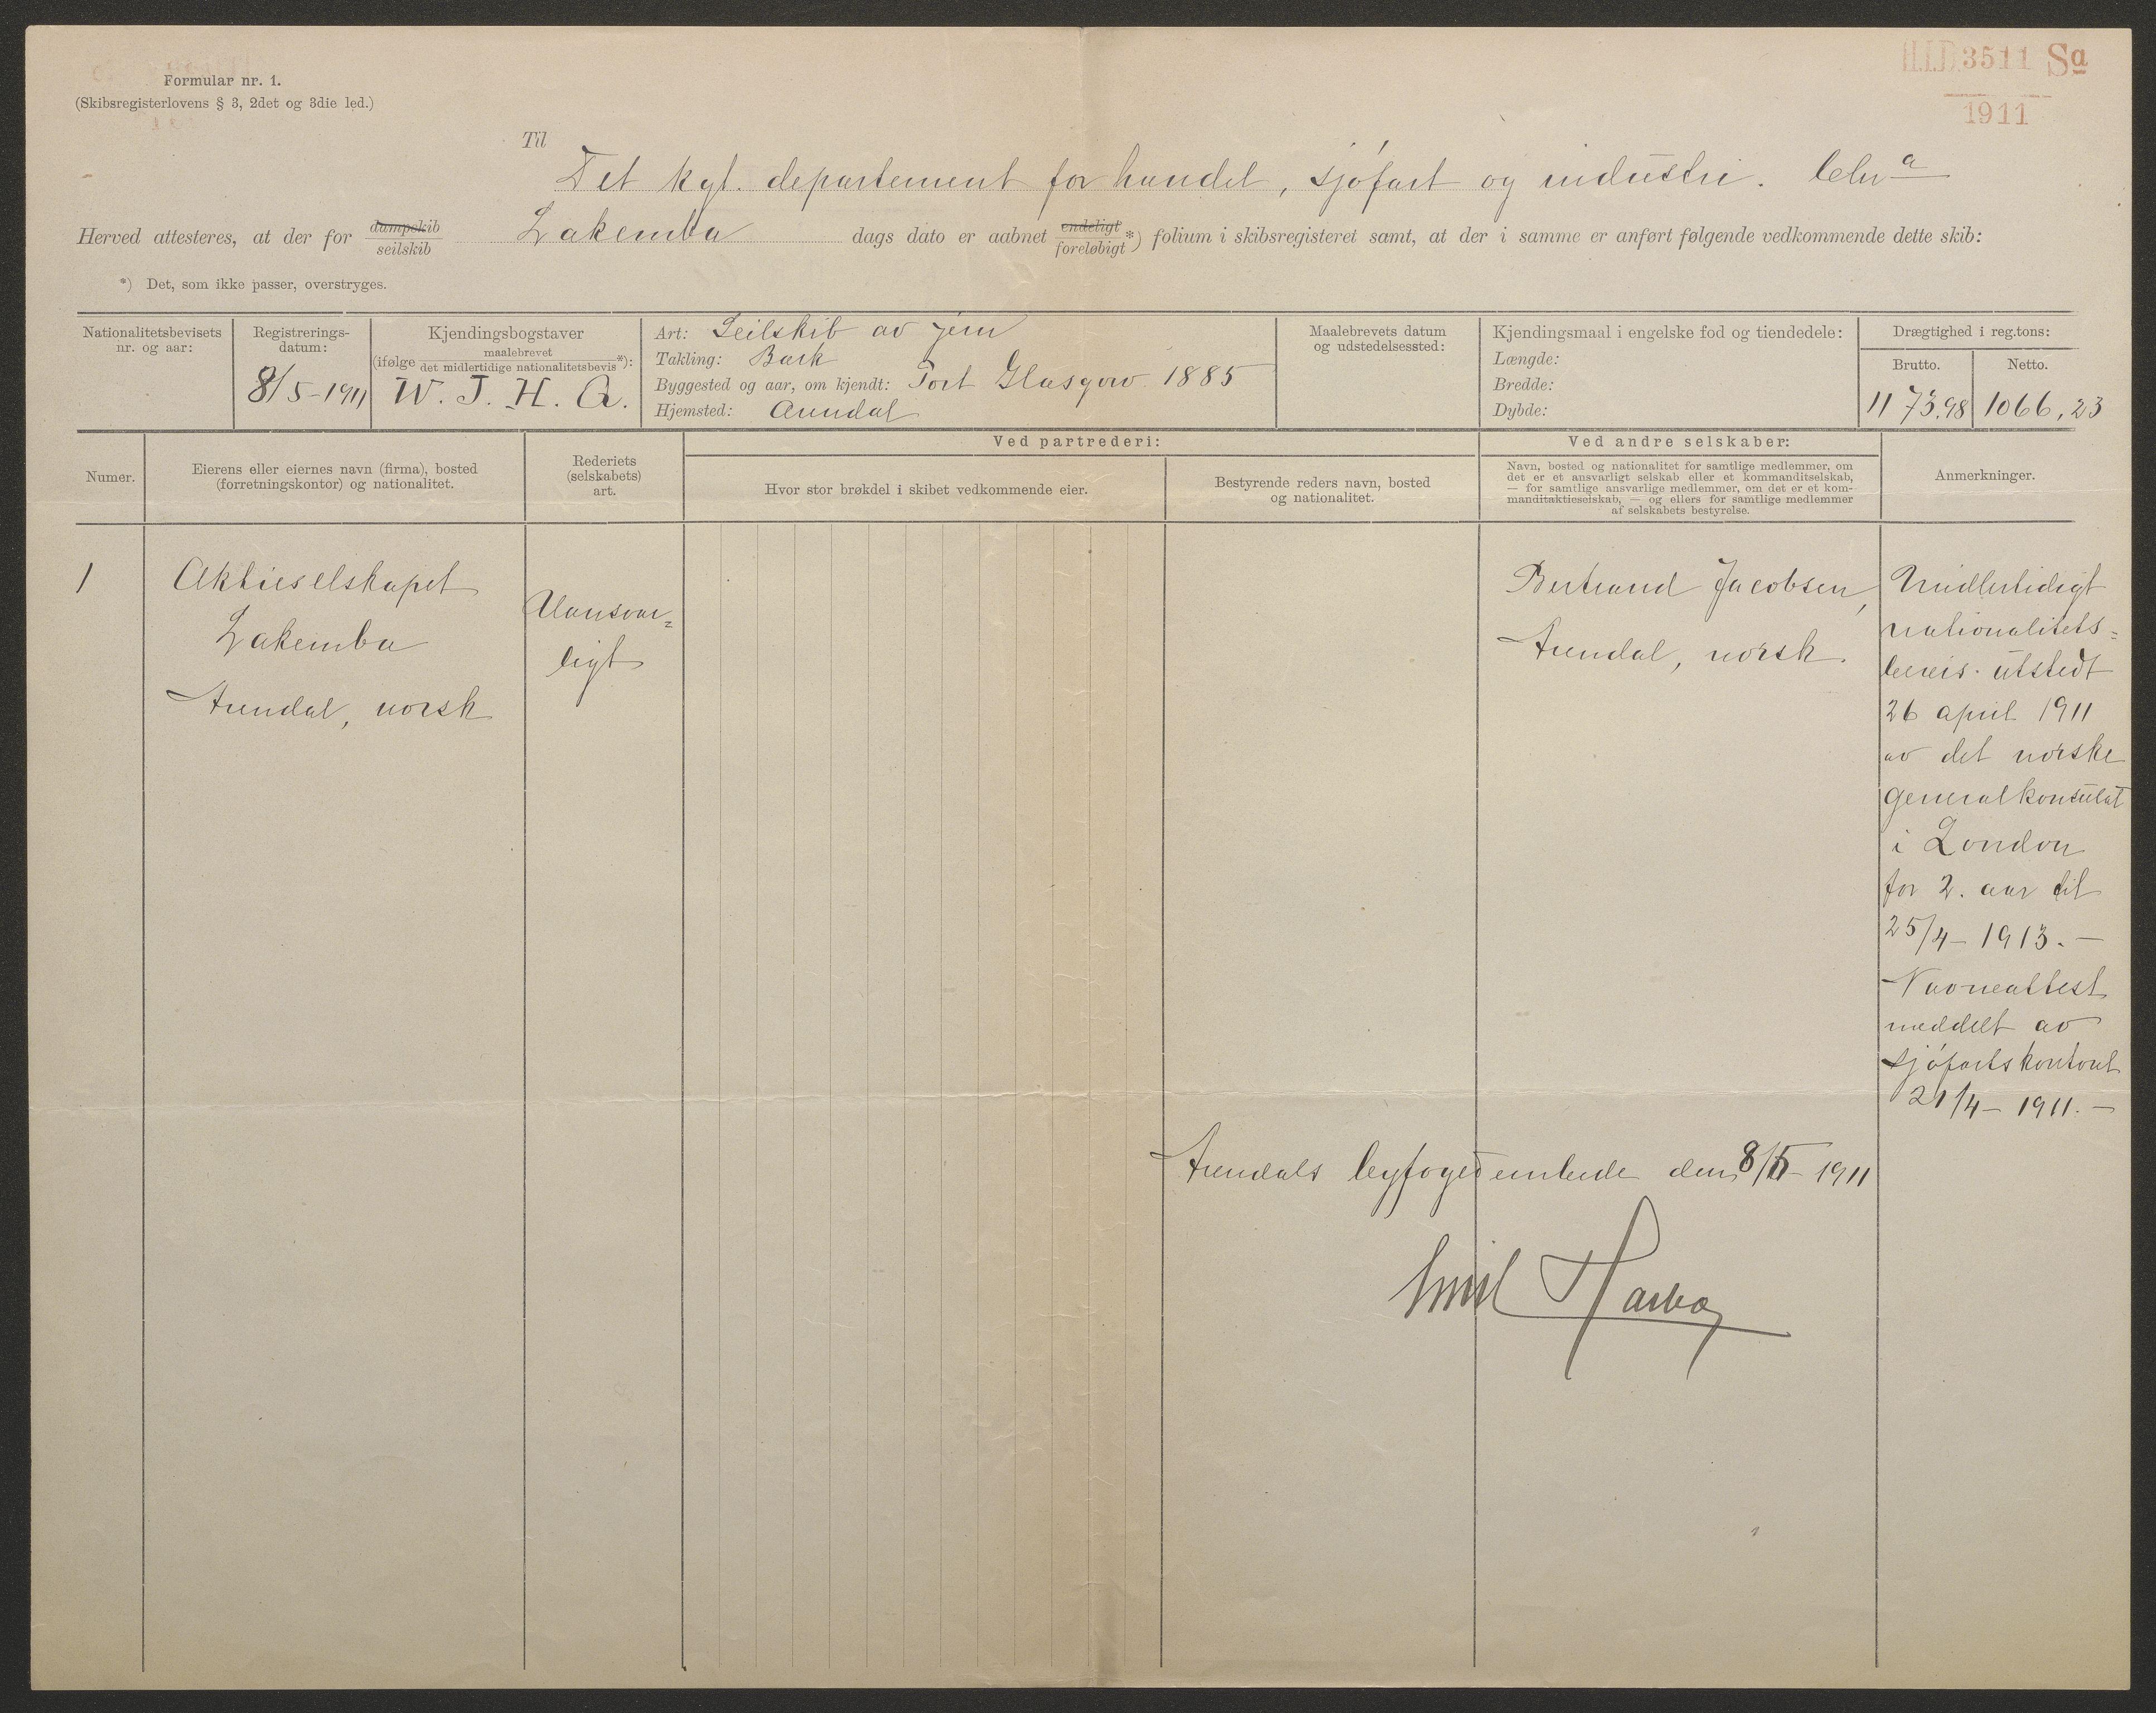 H.I.D. 3511 Sa
1911
Formular nr. 1.
(Skibsregisterlovens § 3, 2det og 3die led.)
Til
Det kgl. departement for handel, sjöfart og industri.
Herved attesteres, at der for dampskib / seilskib Lakemba dags dato er aabnet endeligt / foreløbigt *) folium i skibsregisteret samt, at der i samme er anført følgende vedkommende dette skib:
*) Det, som ikke passer, overstryges.
Nationalitetsbevisets nr. og aar:
Registrerings-datum:
8/5-1911
Kjendingsbogstaver
(ifølge maalebrevet / det midlertidige nationalitetsbevis *):
W. J. H. Q.
Art: Seilskib av jern
Takling: Bark
Byggested og aar, om kjendt: Port Glasgow 1885
Hjemsted: Arendal
Maalebrevets datum
og udstedelsessted:
Kjendingsmaal i engelske fod og tiendedele:
Længde:
Bredde:
Dybde:
Drægtighed i reg.tons:
Brutto. Netto.
1173,98 1066,23
Numer.
Eierens eller eiernes navn (firma), bosted
(forretningskontor) og nationalitet.
Rederiets
(selskabets)
art.
Ved partrederi:
Hvor stor brøkdel i skibet vedkommende eier.
Bestyrende reders navn, bosted
og nationalitet.
Ved andre selskaber:
Navn, bosted og nationalitet for samtlige medlemmer, om
det er et ansvarligt selskab eller et kommanditselskab,
— for samtlige ansvarlige medlemmer, om det er et kom-
manditaktieselskab, — og ellers for samtlige medlemmer
af selskabets bestyrelse.
Anmerkninger.
1
Aktieselskapet
Lakemba
Arendal, norsk
Uansvar=
ligt
Bertrand Jacobsen,
Arendal, norsk.
Midlertidigt
nationalitets=
bevis utstedt
26 april 1911
av det norske
generalkonsulat
i London
for 2. aar til
25/4-1913.—
Navneattest
meddelt av
sjöfartskontoret
21/4-1911.—
Arendals byfogedembede den 8/5-1911
Emil